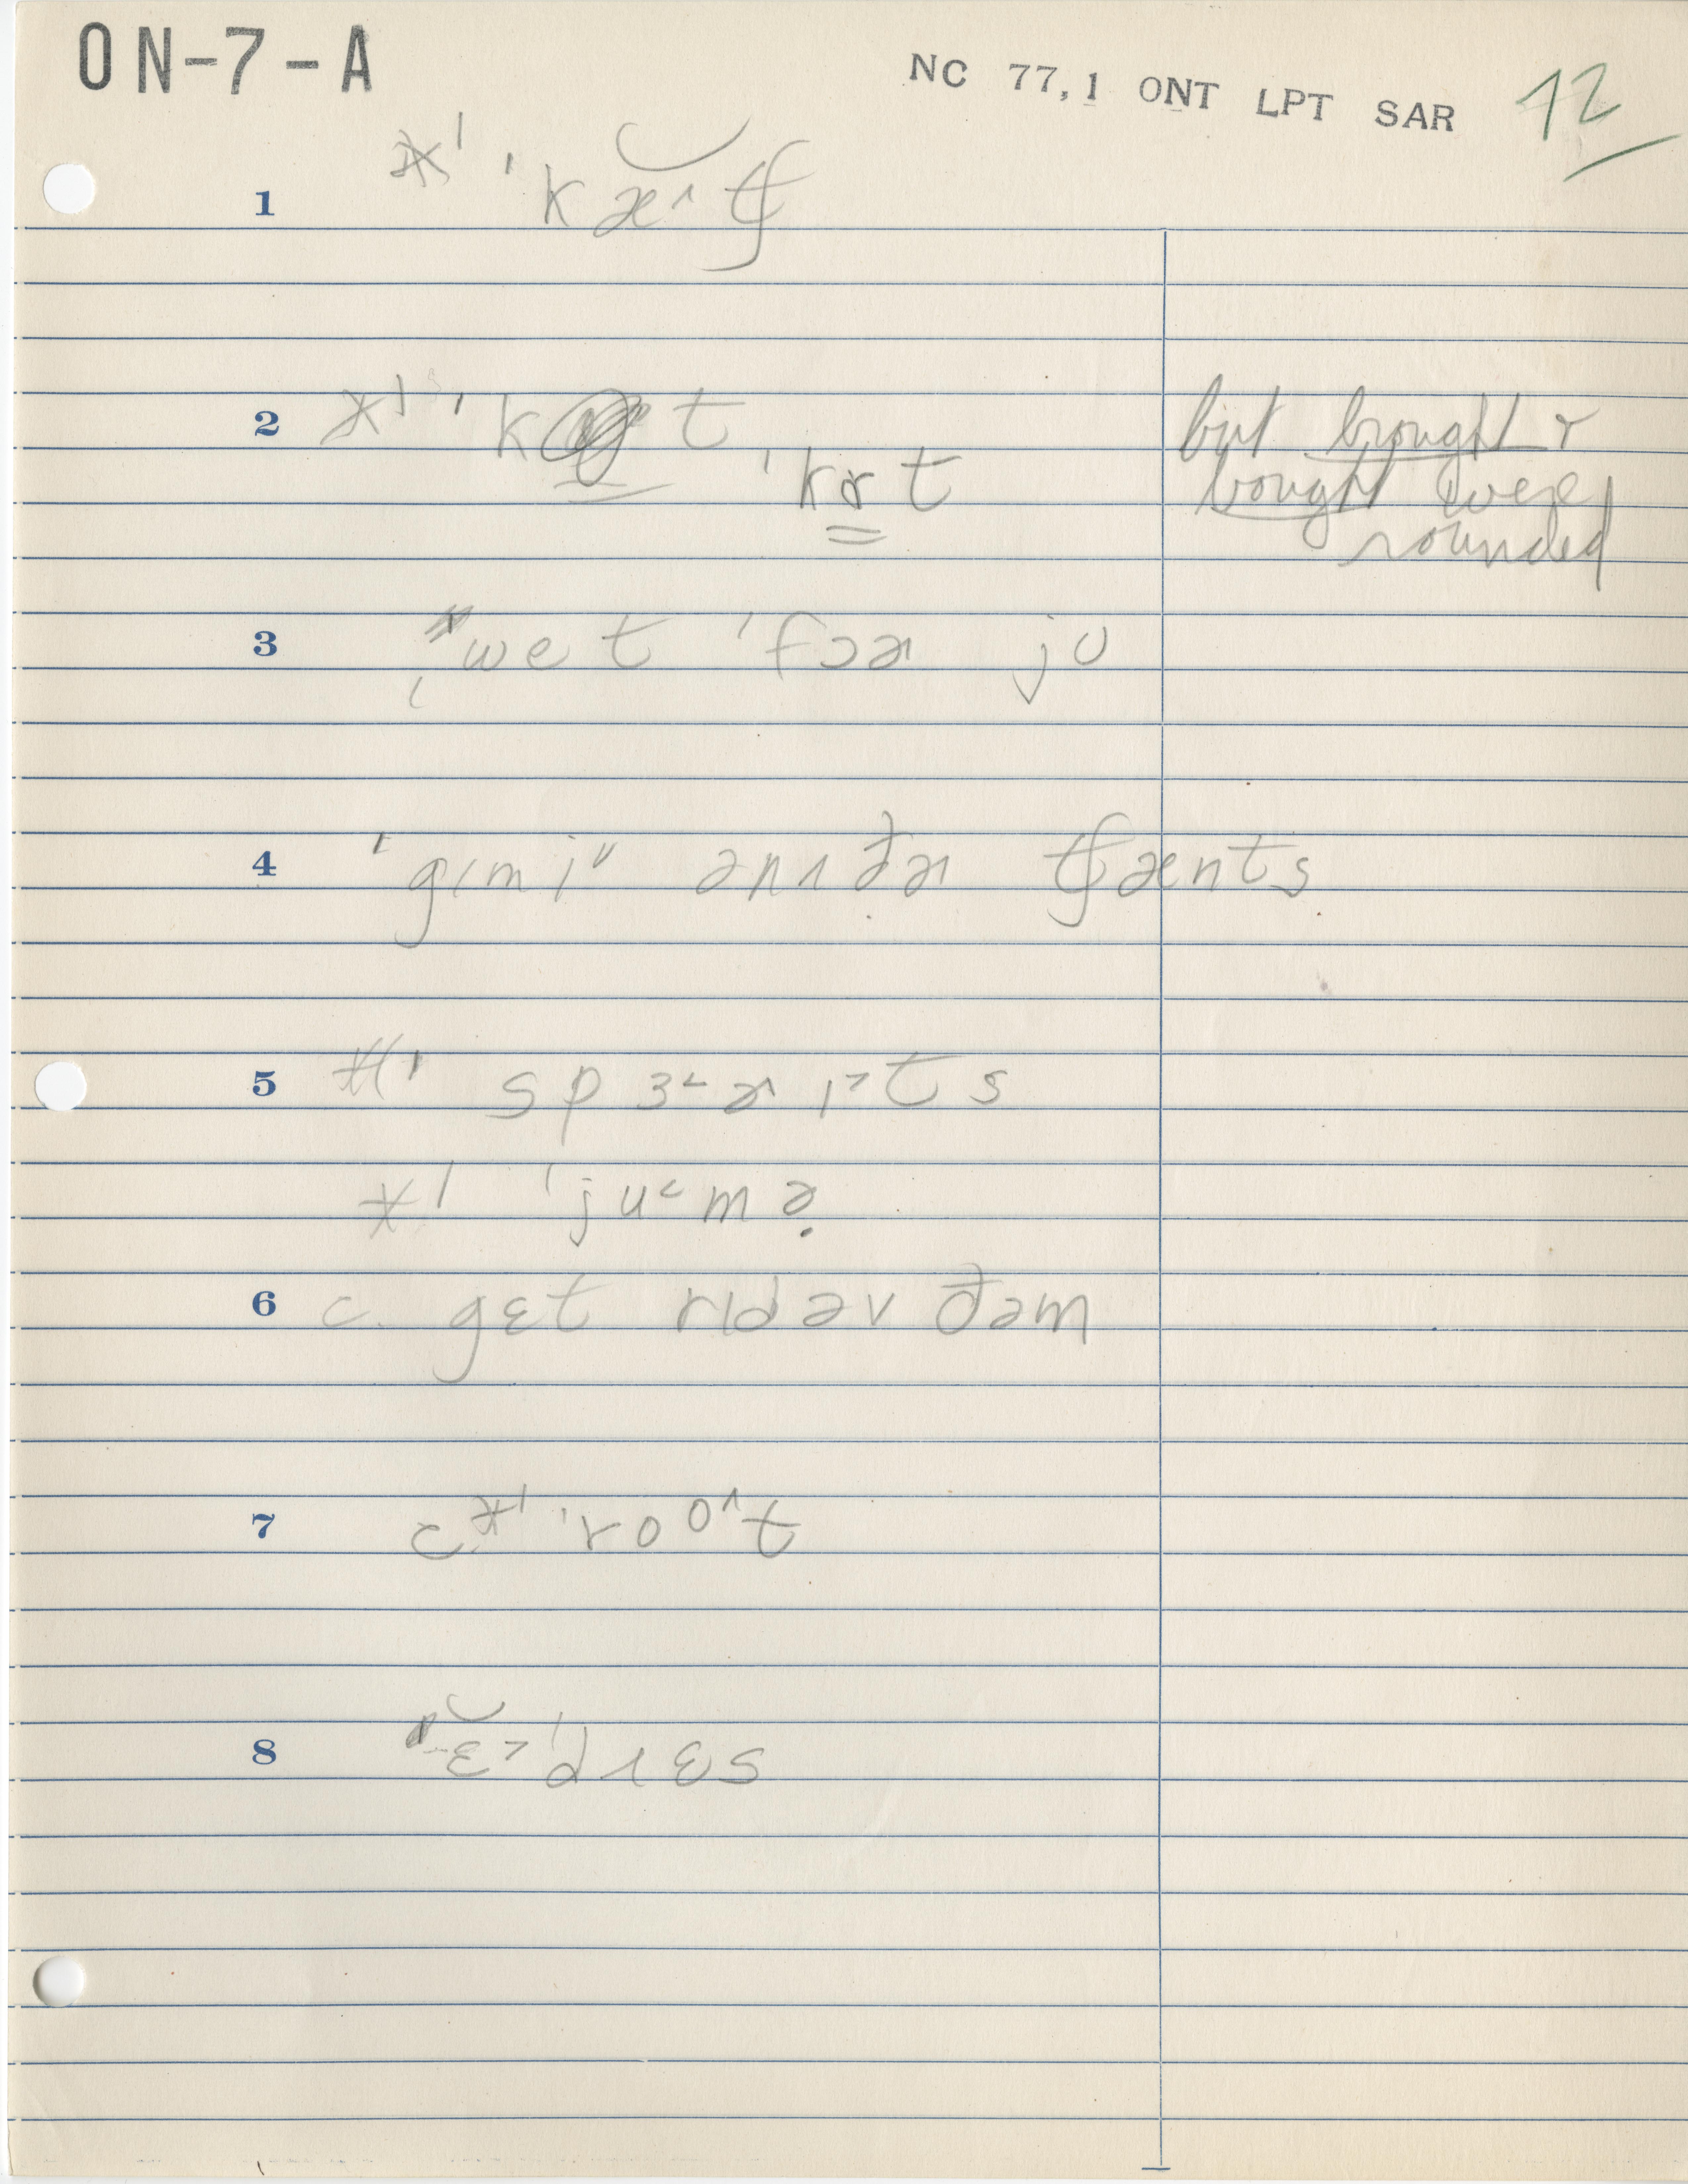 ON-7-A
NC 77,1 ONT LPT SAR 72
1 *ˈ ˈkæ̆˄tʃ
2 *ˈ ˈk t but brought &
ˈkɤt bought were
rounded
3 ˌwet ˈfɔɚ jʊ
4 ˈgɪmi˅ ənʌðɚ tʃænts
5 ˈspɜ˂ɚɪ˃ts
*ˈ ˈju˂mɚ
6 c. gɛt rɪdəv ðəm
7 c *ˈ ˈroo˄t
8 ɛ̆˃ˈdrɛs